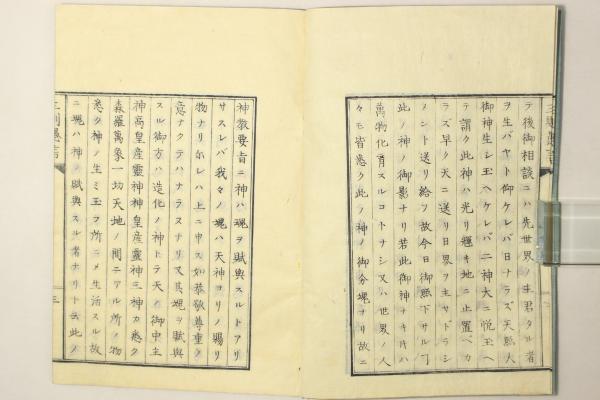 テ後御相談ニハ先世界ノ主君タル者
ヲ生バヤト仰ケレバ日ナラズ天照大
御神生レ玉ヘケレバ二神大ニ悦玉ヘ
テ謂ク此神ハ光リ麗キ地ニ止置ベカ
ラズ早ク天ニ送リ日界ヲ主ヤドラシ
メント送リ給フ故今日御照下サルヿ
此ノ神ノ御影ナリ若此御神ナキトキハ
萬物化育スルコトナシ又ハ世界ノ人
々モ皆悉ク此ノ神ノ御分魂ナリ故ニ
神教要旨ニ神ハ魂ヲ賦與スルトアリ
サスレバ我々ノ魂ハ天神ヨリノ賜リ
物ナリ尓レハ上ニ申ス如恭敬尊重ノ
意ナクテハナラヌナリ又其魂ヲ賦與
スル御方ハ造化ノ神トラ天ノ御中主
神高皇産靈神神皇産靈神三神カ悉ク
森羅萬象一切天地ノ間ニアル所ノ物
悉ク神ノ生ミ玉フ所ニメ生活スル故
ニ魂ハ神ノ賦與スル者ナリト云此ノ
三則愚言
三